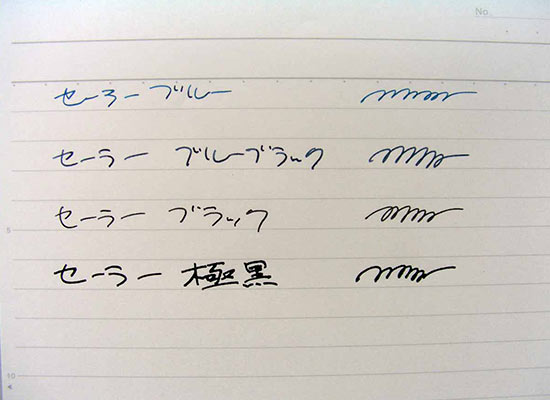 No.
セーラー ブルー
セーラー ブルーブラック
5
セーラー ブラック
セーラー 極黒
10